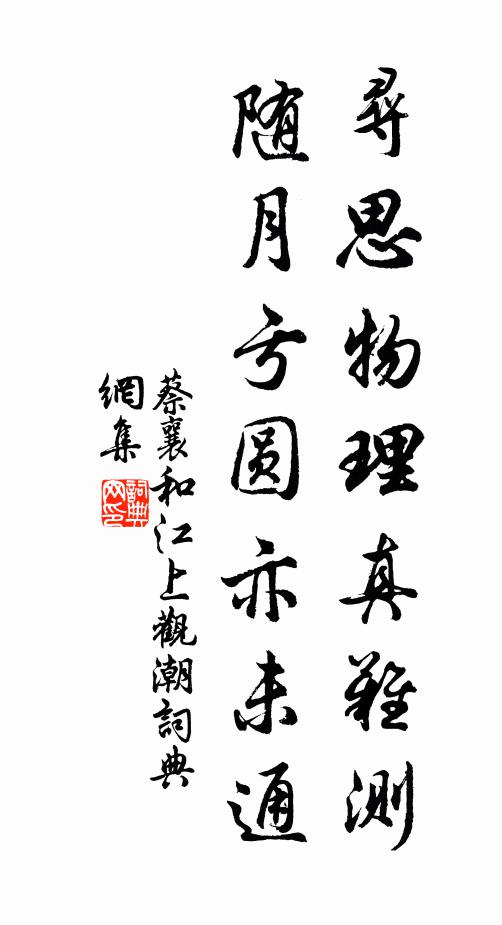 尋思物理真難測
随月亏圆亦未通
蔡襄和江上觀潮詞典
網集
詞典網印